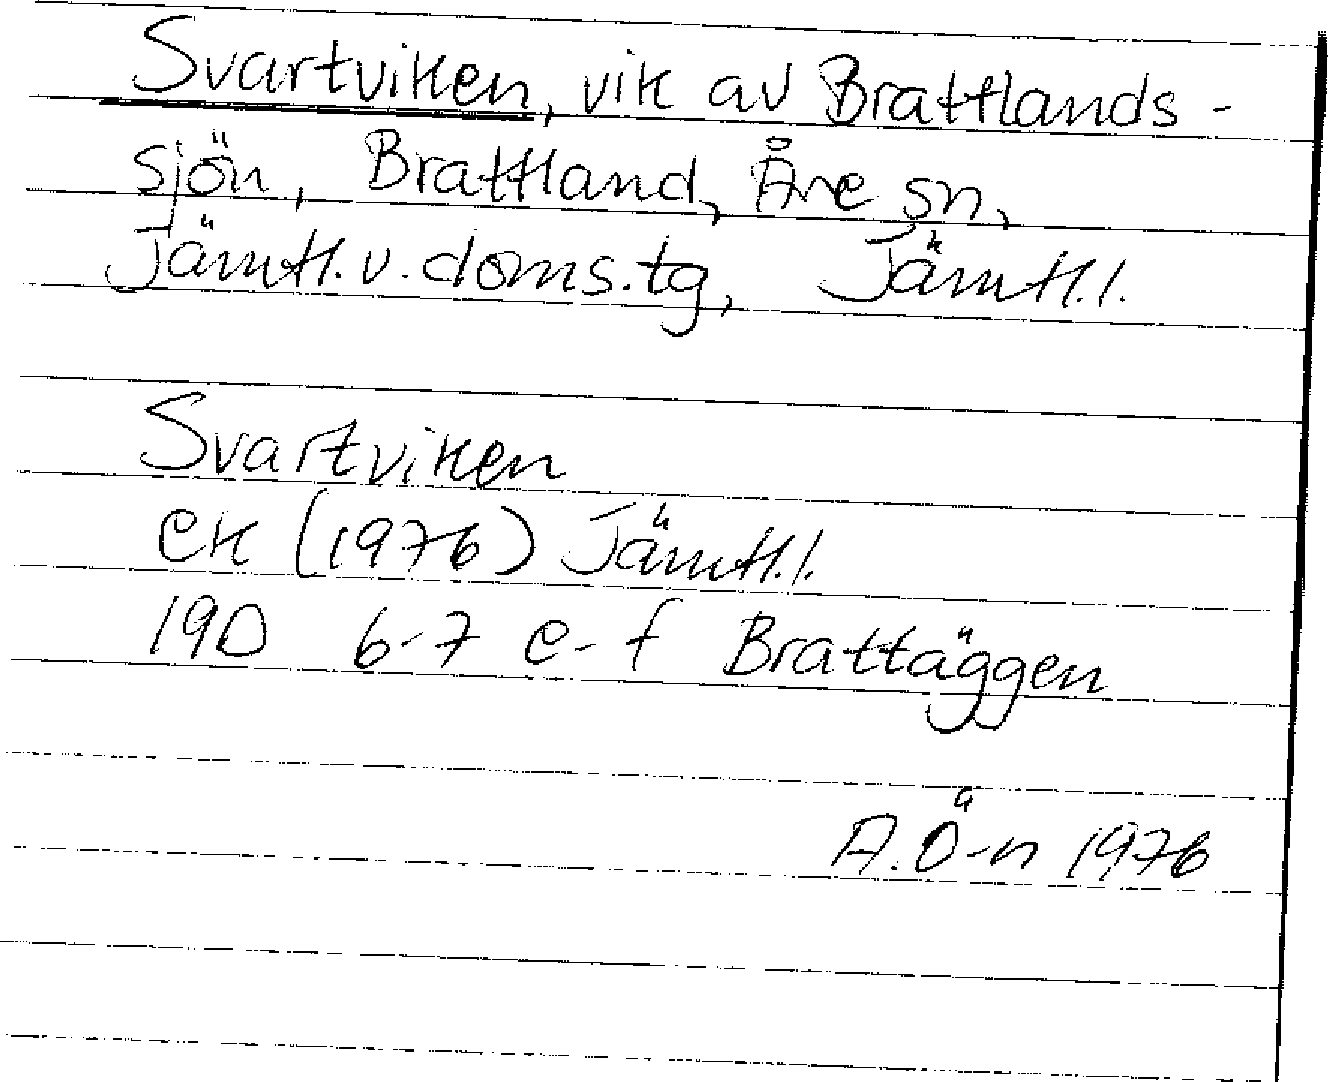 Svartviken, vik av Brattlands-
sjön, Brattland, Åre sn,
Jämtl. v. doms. tg, Jämtl. l.
Svartviken
ek (1976) Jämtl. l.
19D 6-7 e-f Brattäggen
A. Ö-n 1976